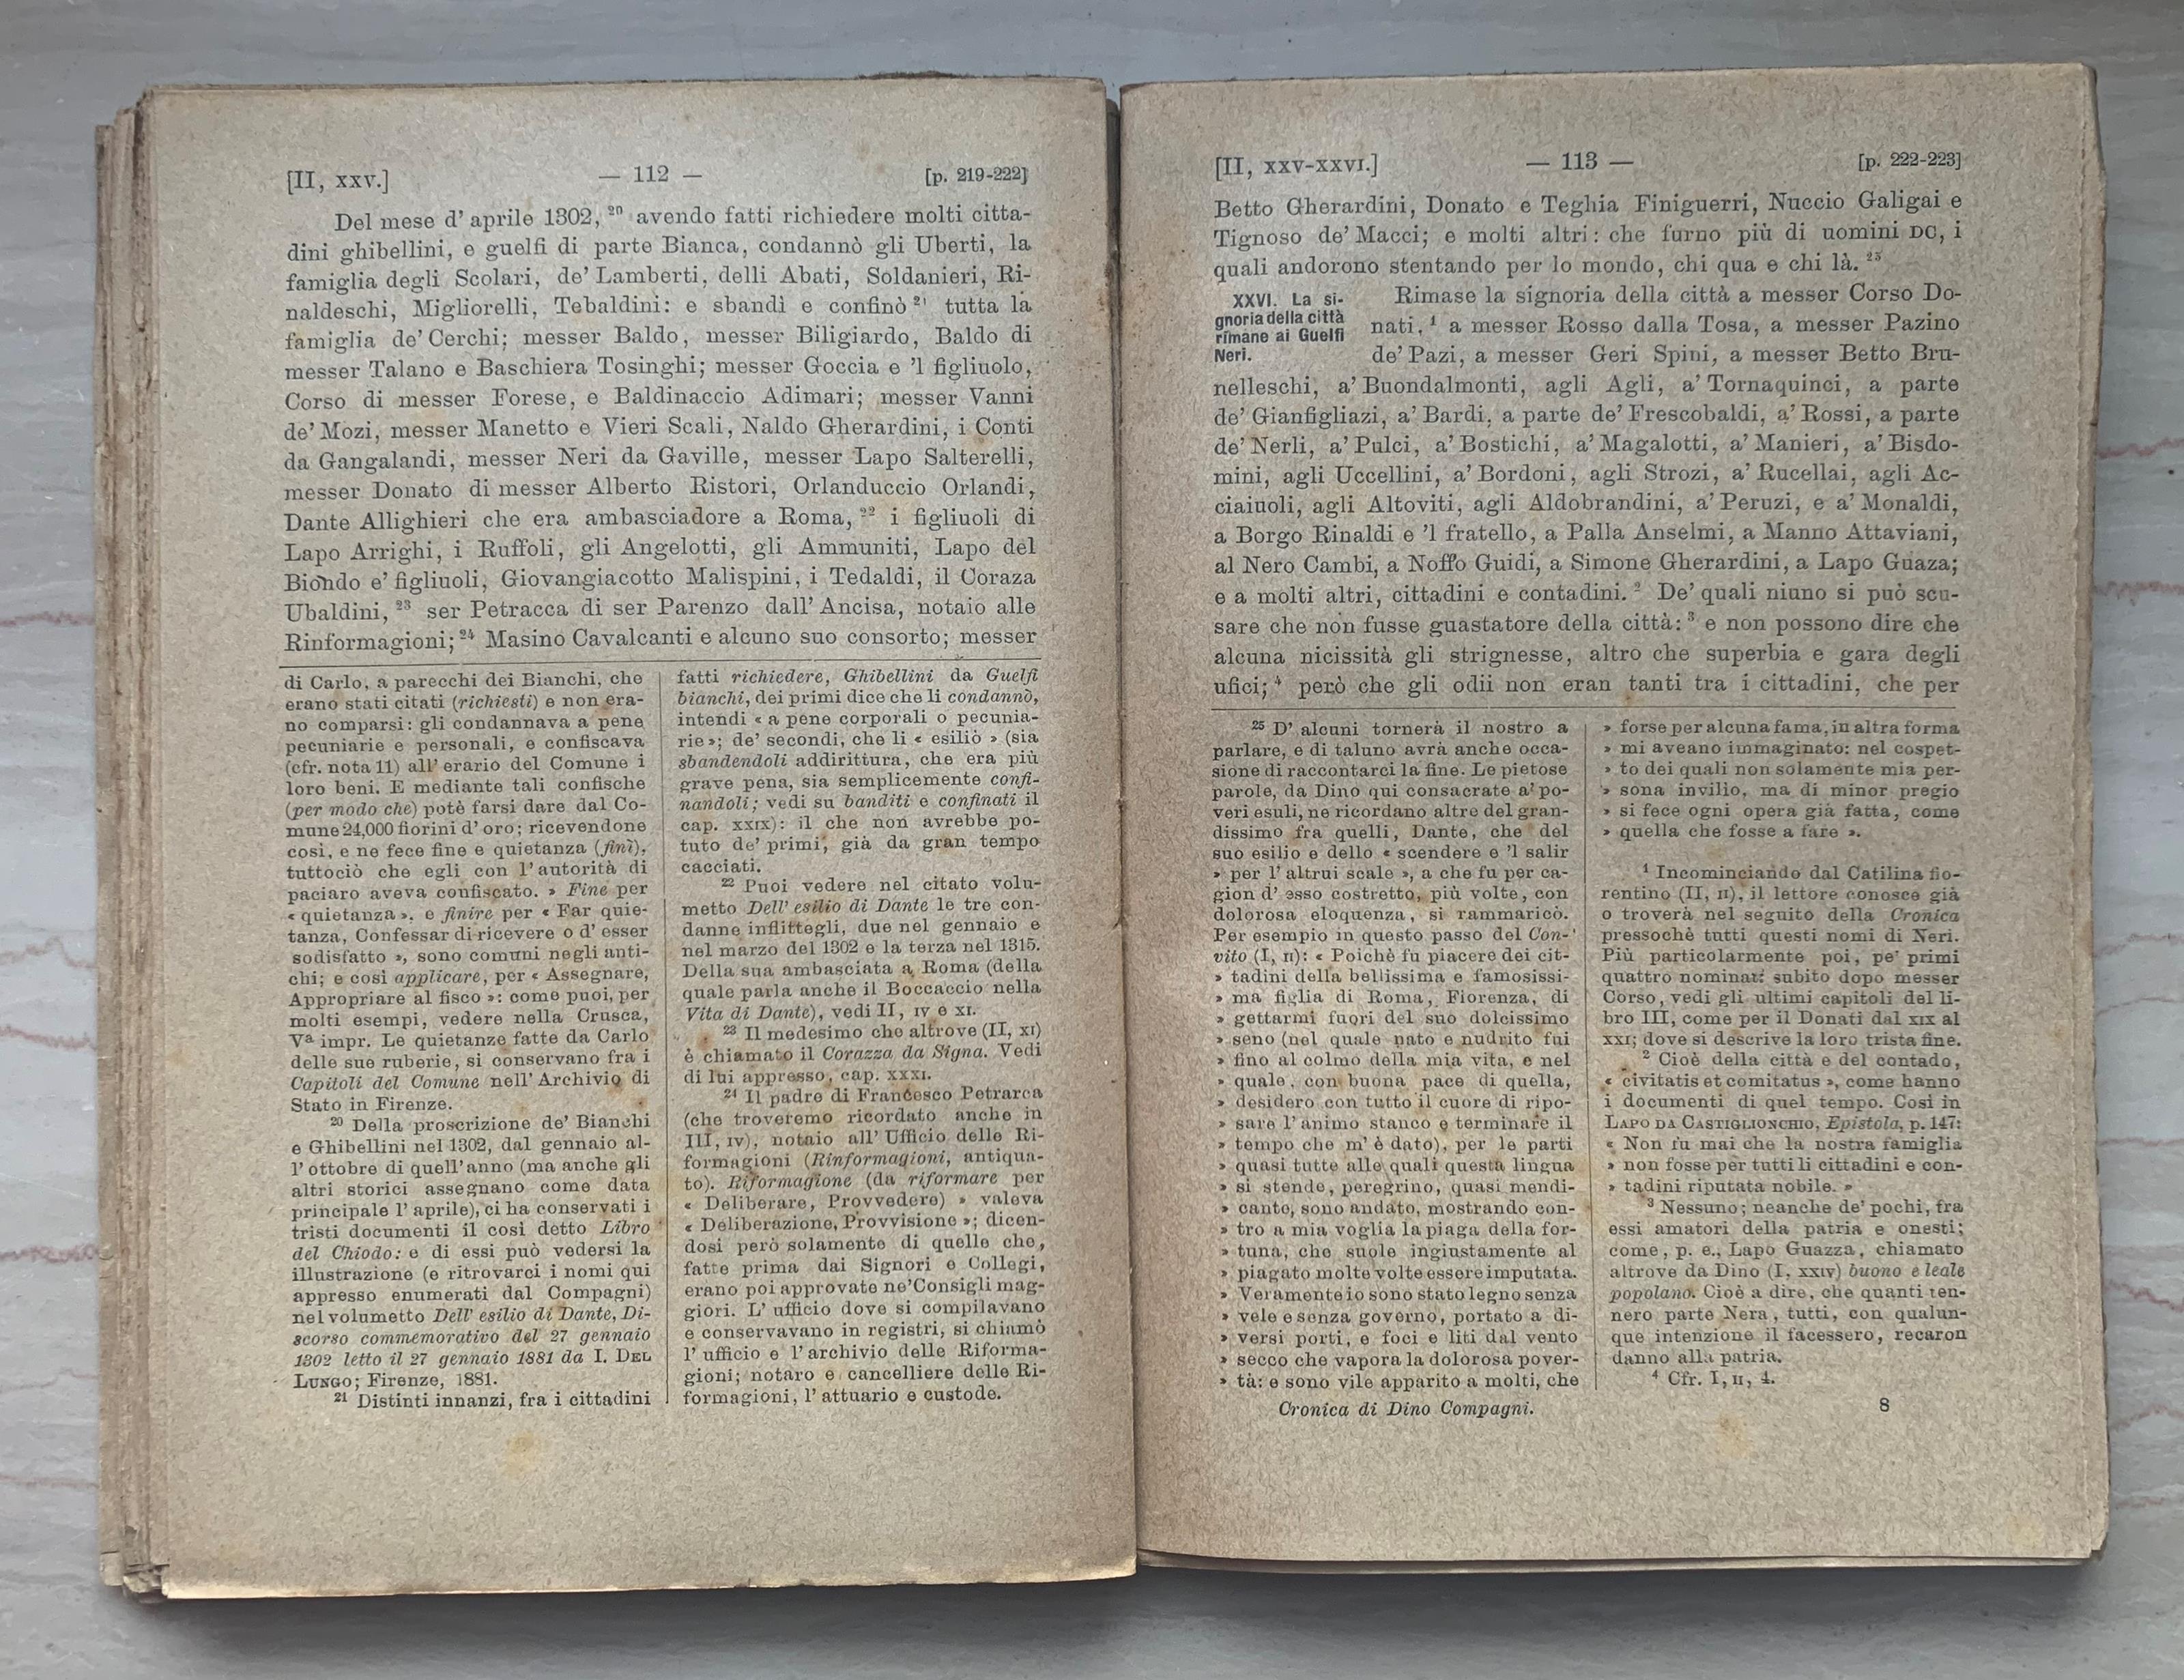 [II, xxv.] — 112 — [p. 219-222]
Del mese d' aprile 1302, ²⁰ avendo fatti richiedere molti citta-
dini ghibellini, e guelfi di parte Bianca, condannò gli Uberti, la
famiglia degli Scolari, de' Lamberti, delli Abati, Soldanieri, Ri-
naldeschi, Migliorelli, Tebaldini: e sbandì e confinò ²¹ tutta la
famiglia de' Cerchi; messer Baldo, messer Biligiardo, Baldo di
messer Talano e Baschiera Tosinghi; messer Goccia e 'l figliuolo,
Corso di messer Forese, e Baldinaccio Adimari; messer Vanni
de' Mozi, messer Manetto e Vieri Scali, Naldo Gherardini, i Conti
da Gangalandi, messer Neri da Gaville, messer Lapo Salterelli,
messer Donato di messer Alberto Ristori, Orlanduccio Orlandi,
Dante Allighieri che era ambasciadore a Roma, ²² i figliuoli di
Lapo Arrighi, i Ruffoli, gli Angelotti, gli Ammuniti, Lapo del
Biondo e' figliuoli, Giovangiacotto Malispini, i Tedaldi, il Coraza
Ubaldini, ²³ ser Petracca di ser Parenzo dall' Ancisa, notaio alle
Rinformagioni; ²⁴ Masino Cavalcanti e alcuno suo consorto; messer
di Carlo, a parecchi dei Bianchi, che
erano stati citati (richiesti) e non era-
no comparsi: gli condannava a pene
pecuniarie e personali, e confiscava
(cfr. nota 11) all' erario del Comune i
loro beni. E mediante tali confische
(per modo che) potè farsi dare dal Co-
mune 24,000 fiorini d' oro; ricevendone
così, e ne fece fine e quietanza (finì),
tuttociò che egli con l' autorità di
paciaro aveva confiscato. » Fine per
« quietanza », e finire per « Far quie-
tanza, Confessar di ricevere o d' esser
sodisfatto », sono comuni negli anti-
chi; e così applicare, per « Assegnare,
Appropriare al fisco »: come puoi, per
molti esempi, vedere nella Crusca,
Vª impr. Le quietanze fatte da Carlo
delle sue ruberie, si conservano fra i
Capitoli del Comune nell' Archivio di
Stato in Firenze.
²⁰ Della proscrizione de' Bianchi
e Ghibellini nel 1302, dal gennaio al-
l' ottobre di quell' anno (ma anche gli
altri storici assegnano come data
principale l' aprile), ci ha conservati i
tristi documenti il così detto Libro
del Chiodo: e di essi può vedersi la
illustrazione (e ritrovarci i nomi qui
appresso enumerati dal Compagni)
nel volumetto Dell' esilio di Dante, Di-
scorso commemorativo del 27 gennaio
1302 letto il 27 gennaio 1881 da I. DEL
LUNGO; Firenze, 1881.
²¹ Distinti innanzi, fra i cittadini
fatti richiedere, Ghibellini da Guelfi
bianchi, dei primi dice che li condannò,
intendi « a pene corporali o pecunia-
rie »; de' secondi, che li « esiliò » (sia
sbandendoli addirittura, che era più
grave pena, sia semplicemente confi-
nandoli; vedi su banditi e confinati il
cap. xxix): il che non avrebbe po-
tuto de' primi, già da gran tempo
cacciati.
²² Puoi vedere nel citato volu-
metto Dell' esilio di Dante le tre con-
danne inflittegli, due nel gennaio e
nel marzo del 1302 e la terza nel 1315.
Della sua ambasciata a Roma (della
quale parla anche il Boccaccio nella
Vita di Dante), vedi II, iv e xi.
²³ Il medesimo che altrove (II, xi)
è chiamato il Corazza da Signa. Vedi
di lui appresso, cap. xxxi.
²⁴ Il padre di Francesco Petrarca
(che troveremo ricordato anche in
III, iv), notaio all' Ufficio delle Ri-
formagioni (Rinformagioni, antiqua-
to). Riformagione (da riformare per
« Deliberare, Provvedere) » valeva
« Deliberazione, Provvisione »; dicen-
dosi però solamente di quelle che,
fatte prima dai Signori e Collegi,
erano poi approvate ne' Consigli mag-
giori. L' ufficio dove si compilavano
e conservavano in registri, si chiamò
l' ufficio e l' archivio delle Riforma-
gioni; notaro e cancelliere delle Ri-
formagioni, l' attuario e custode.
[II, xxv-xxvi.] — 113 — [p. 222-223]
Betto Gherardini, Donato e Teghia Finiguerri, Nuccio Galigai e
Tignoso de' Macci; e molti altri: che furno più di uomini DC, i
quali andorono stentando per lo mondo, chi qua e chi là. ²⁵
XXVI. La si-
gnoria della città
rimane ai Guelfi
Neri.
Rimase la signoria della città a messer Corso Do-
nati, ¹ a messer Rosso dalla Tosa, a messer Pazino
de' Pazi, a messer Geri Spini, a messer Betto Bru-
nelleschi, a' Buondalmonti, agli Agli, a' Tornaquinci, a parte
de' Gianfigliazi, a' Bardi, a parte de' Frescobaldi, a' Rossi, a parte
de' Nerli, a' Pulci, a' Bostichi, a' Magalotti, a' Manieri, a' Bisdo-
mini, agli Uccellini, a' Bordoni, agli Strozi, a' Rucellai, agli Ac-
ciaiuoli, agli Altoviti, agli Aldobrandini, a' Peruzi, e a' Monaldi,
a Borgo Rinaldi e 'l fratello, a Palla Anselmi, a Manno Attaviani,
al Nero Cambi, a Noffo Guidi, a Simone Gherardini, a Lapo Guaza;
e a molti altri, cittadini e contadini. ² De' quali niuno si può scu-
sare che non fusse guastatore della città: ³ e non possono dire che
alcuna nicissità gli strignesse, altro che superbia e gara degli
ufici; ⁴ però che gli odii non eran tanti tra i cittadini, che per
²⁵ D' alcuni tornerà il nostro a
parlare, e di taluno avrà anche occa-
sione di raccontarci la fine. Le pietose
parole, da Dino qui consacrate a' po-
veri esuli, ne ricordano altre del gran-
dissimo fra quelli, Dante, che del
suo esilio e dello « scendere e 'l salir
» per l' altrui scale », a che fu per ca-
gion d' esso costretto, più volte, con
dolorosa eloquenza, si rammaricò.
Per esempio in questo passo del Con-
vito (I, ii): « Poichè fu piacere dei cit-
» tadini della bellissima e famosissi-
» ma figlia di Roma, Fiorenza, di
» gettarmi fuori del suo dolcissimo
» seno (nel quale nato e nudrito fui
» fino al colmo della mia vita, e nel
» quale, con buona pace di quella,
» desidero con tutto il cuore di ripo-
» sare l' animo stanco e terminare il
» tempo che m' è dato), per le parti
» quasi tutte alle quali questa lingua
» si stende, peregrino, quasi mendi-
» cante, sono andato, mostrando con-
» tro a mia voglia la piaga della for-
» tuna, che suole ingiustamente al
» piagato molte volte essere imputata.
» Veramente io sono stato legno senza
» vele e senza governo, portato a di-
» versi porti, e foci e liti dal vento
» secco che vapora la dolorosa pover-
» tà: e sono vile apparito a molti, che
» forse per alcuna fama, in altra forma
» mi aveano immaginato: nel cospet-
» to dei quali non solamente mia per-
» sona invilìo, ma di minor pregio
» si fece ogni opera già fatta, come
» quella che fosse a fare ».
¹ Incominciando dal Catilina fio-
rentino (II, ii), il lettore conosce già
o troverà nel seguito della Cronica
pressochè tutti questi nomi di Neri.
Più particolarmente poi, pe' primi
quattro nominati subito dopo messer
Corso, vedi gli ultimi capitoli del li-
bro III, come per il Donati dal xix al
xxi; dove si descrive la loro trista fine.
² Cioè della città e del contado,
« civitatis et comitatus », come hanno
i documenti di quel tempo. Così in
LAPO DA CASTIGLIONCHIO, Epistola, p. 147:
« Non fu mai che la nostra famiglia
» non fosse per tutti li cittadini e con-
» tadini riputata nobile. »
³ Nessuno; neanche de' pochi, fra
essi amatori della patria e onesti;
come, p. e., Lapo Guazza, chiamato
altrove da Dino (I, xxiv) buono e leale
popolano. Cioè a dire, che quanti ten-
nero parte Nera, tutti, con qualun-
que intenzione il facessero, recaron
danno alla patria.
⁴ Cfr. I, ii, 4.
Cronica di Dino Compagni. 8